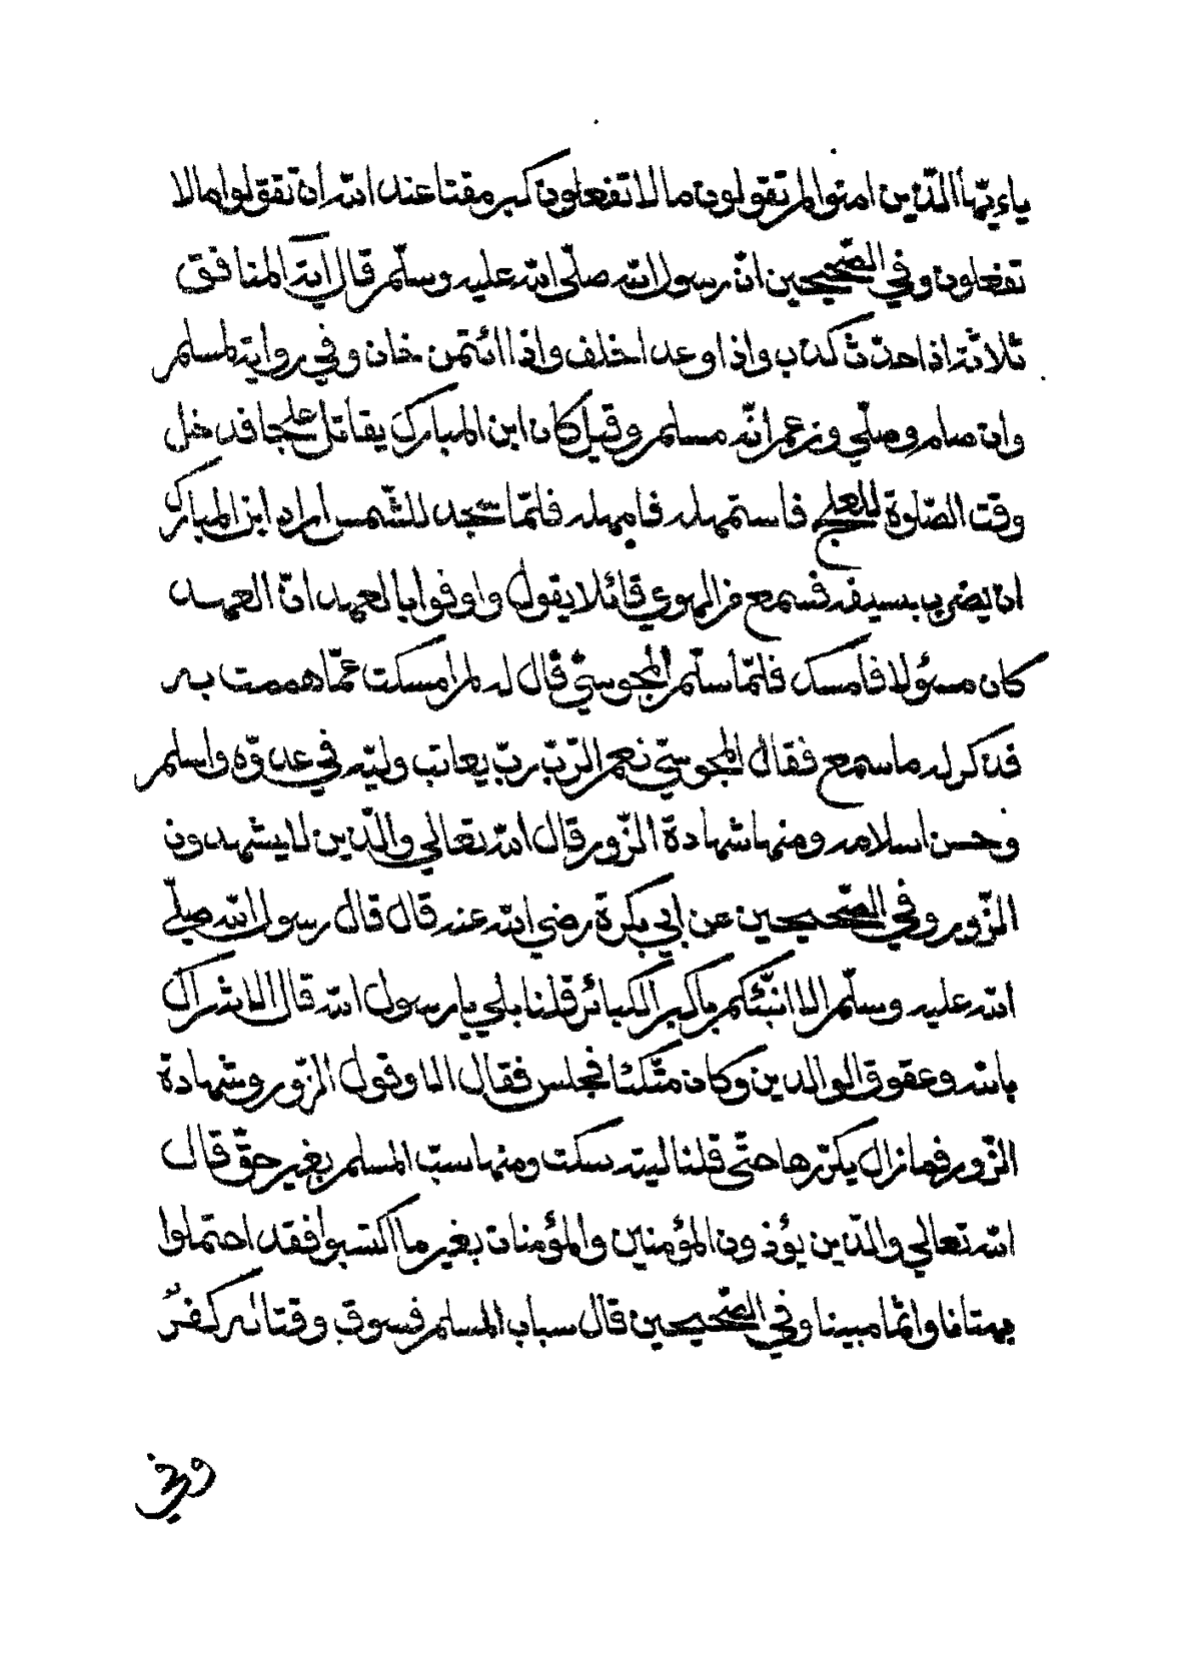 ياءيّها الّذين امنوا لم تقولون ما لا تفعلون كبر مقتا عند الله ان تقولوا ما لا
تفعلون وفي الصّحيحين انّ رسول الله صلّى الله عليه وسلّم قال اية المنافق
ثلاثة اذا حدّث كذب واذا وعد اخلف واذا ائتمن خان وفي رواية لمسلم
وان صام وصلّي وزعم انّه مسلم وقيل كان ابن المبارك يقاتل علجا فدخل
وقت الصّلوة للعلج فاستمهله فامهله فلمّا سجد للشّمس اراد ابن المبارك
ان يضرب بسيفه فسمع من الهوي قائلا يقول واوفوا بالعهد انّ العهد
كان مسؤلا فامسك فلمّا سلّم المجوسيّ قال له لم امسكت عمّا هممت به
فذكر له ما سمع فقال المجوسيّ نعم الرّبّ ربّ يعاتب وليّه في عدوّه واسلم
وحسن اسلامه ومنها شهادة الزّور قال الله تعالي والّذين لا يشهدون
الزّور وفي الصّحيحين عن ابي بكرة رضي الله عنه قال قال رسول الله صلّي
الله عليه وسلّم الا انبّئكم باكبر الكبائر قلنا بلي يا رسول الله قال الاشراك
بالله وعقوق الوالدين وكان متّكئا فجلس فقال الا وقول الزّور وشهادة
الزّور فما زال يكرّرها حتّى قلنا ليته سكت ومنها سبّ المسلم بغير حقّ قال
الله تعالي والّذين يؤذون المؤمنين والمؤمنات بغير ما اكتسبوا فقد احتملوا
بهتانا واثما مبينا وفي الصّحيحين قال سباب المسلم فسوق وقتاله كفرٌ
وفي